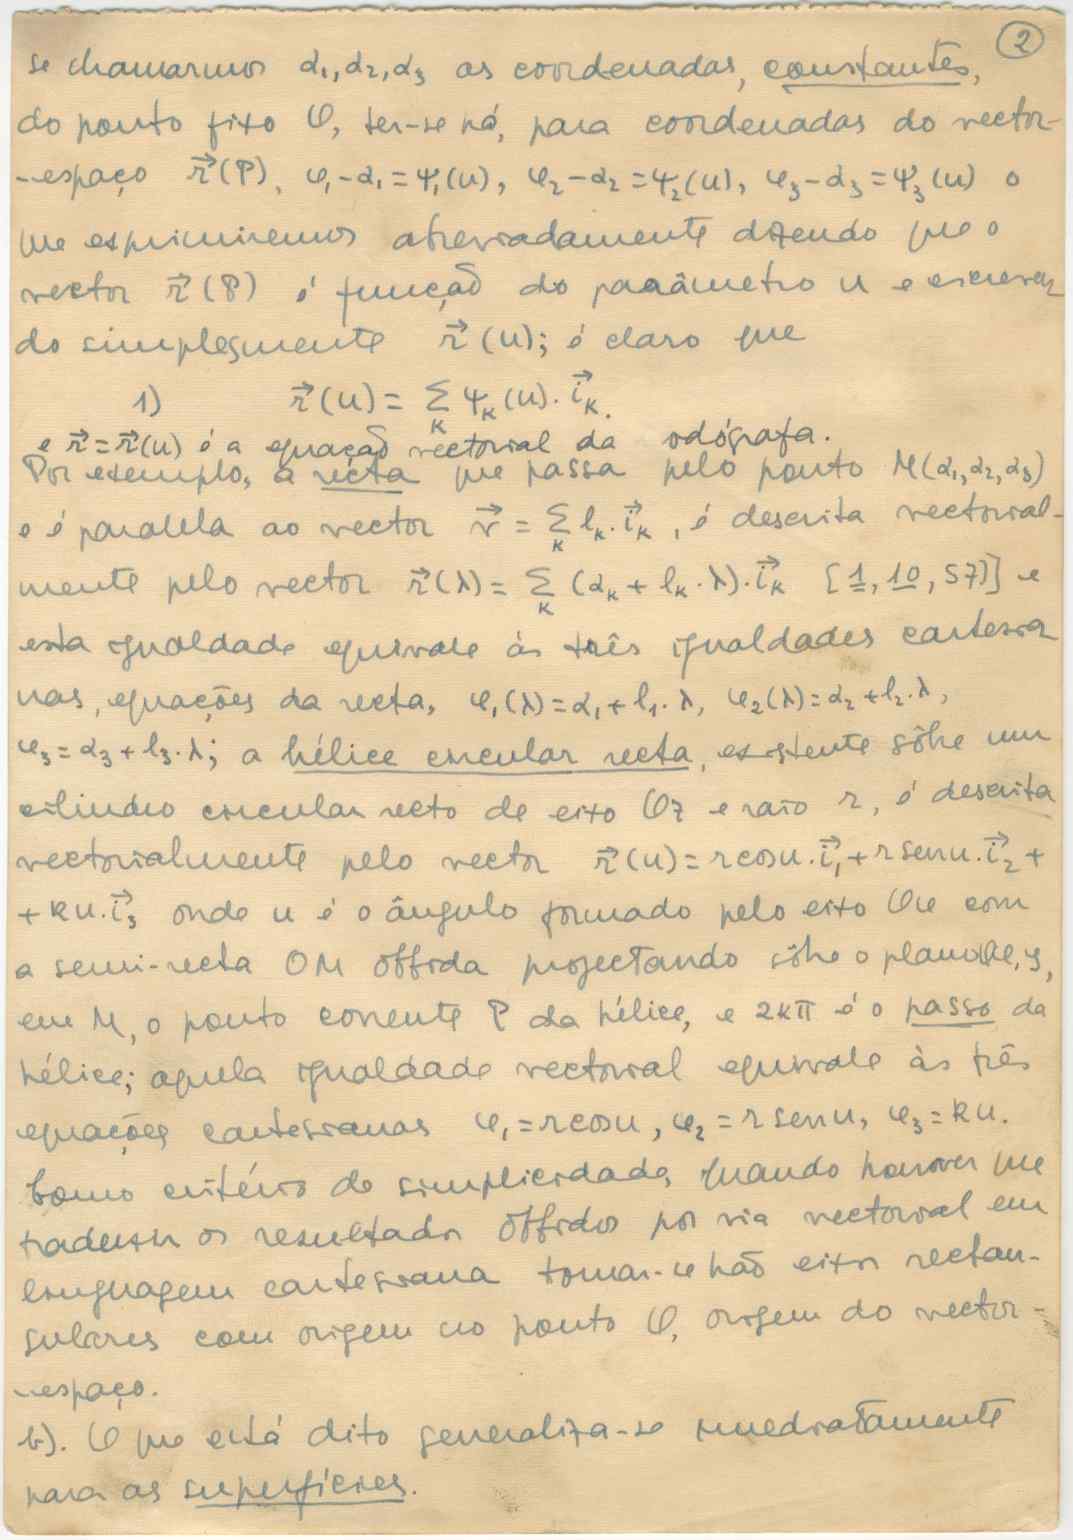 2
se chamarmos α₁, α₂, α₃ as coordenadas, constantes,
do ponto fixo O, ter-se há, para coordenadas do vector-
-espaço r⃗(P), φ₁-α₁=ψ₁(u), φ₂-α₂=ψ₂(u), φ₃-α₃=ψ₃(u) o
que exprimiremos abreviadamente dizendo que o
vector r⃗(P) é função do parâmetro u e escreven
do simplesmente r⃗(u); é claro que
1) r⃗(u) = Σₖ ψₖ(u)·i⃗ₖ.
e r⃗=r⃗(u) é a equação vectorial da odógrafa.
Por exemplo, a recta que passa pelo ponto M(α₁,α₂,α₃)
e é paralela ao vector v⃗ = Σₖ lₖ·i⃗ₖ, é descrita vectorial-
mente pelo vector r⃗(λ)= Σₖ (αₖ+lₖ·λ)·i⃗ₖ [1, 10, 57)] e
esta igualdade equivale às três igualdades cartesia
nas, equações da recta, φ₁(λ)=α₁+l₁·λ, φ₂(λ)=α₂+l₂·λ,
φ₃=α₃+l₃·λ; a hélice circular recta, existente sôbre um
cilindro circular recto de eixo Oz e raio r, é descrita
vectorialmente pelo vector r⃗(u)=rcosu·i⃗₁+rsenu·i⃗₂+
+ku·i⃗₃ onde u é o ângulo formado pelo eixo Ox com
a semi-recta OM obtida projectando sôbre o plano x,y,
em M, o ponto corrente P da hélice, e 2kπ é o passo da
hélice; aquela igualdade vectorial equivale às três
equações cartesianas φ₁=rcosu, φ₂=rsenu, φ₃=ku.
Como critério de simplicidade, quando houver que
traduzir os resultados obtidos por via vectorial em
linguagem cartesiana tomar-se hão eixos rectan-
gulares com origem no ponto O, origem do vector-
-espaço.
b). O que está dito generaliza-se imediatamente
para as superfícies.